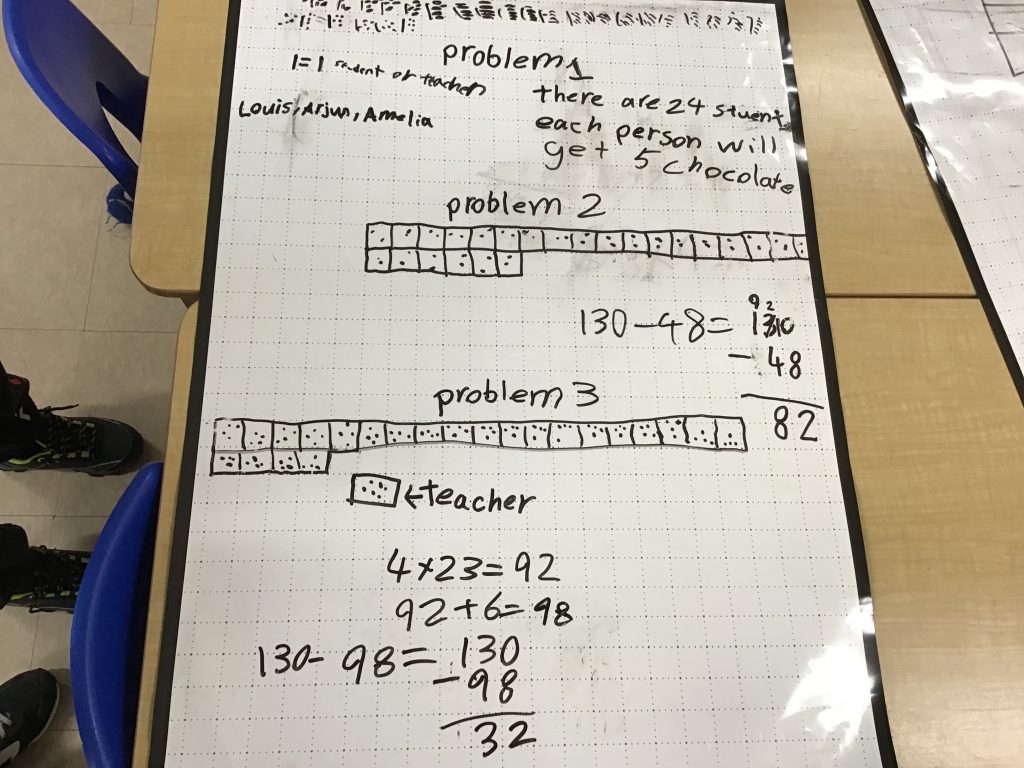 problem 1
1=1 student or teacher
Louis, Arjun, Amelia
there are 24 stuent
each person will
get 5 chocolate
problem 2
130-48=
9 2
1310
- 48
82
problem 3
←teacher
4×23=92
92+6=98
130- 98= 130
-98
32